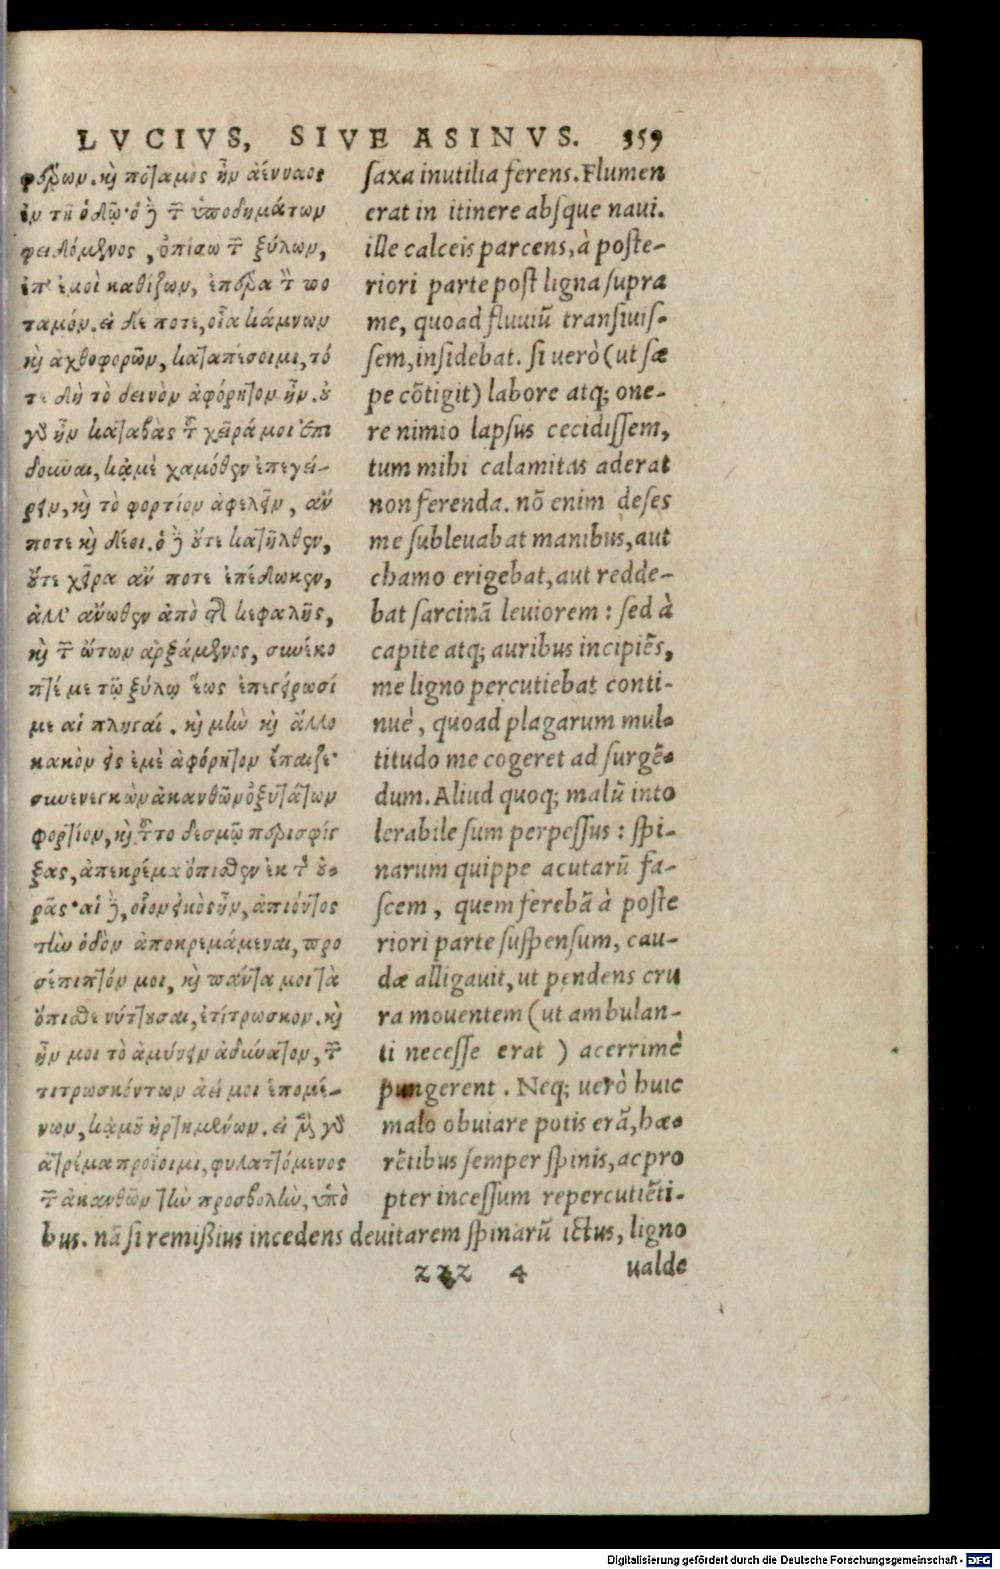 LVCIVS, SIVE ASINVS. 359
φέρων. καὶ ποταμὸς ἦν ἀένναος
ἐν τῇ ὁδῷ· ὁ δὲ τῶν ὑποδημάτων
φειδόμενος, ὀπίσω τῶν ξύλων,
ἐπ' ἐμοὶ καθίζων, ἐπέρα τὸν πο
ταμόν. εἰ δέ ποτε, οἷα κάμνων
καὶ ἀχθοφορῶν, καταπέσοιμι, τό
τε δὴ τὸ δεινὸν ἀφόρητον ἦν. οὐ
γὰρ ἦν καταβὰς τὴν χεῖρά μοι ἐπι
δοῦναι, κᾀμὲ χαμόθεν ἐπεγεί-
ρειν, καὶ τὸ φορτίον ἀφελεῖν, ἄν
ποτε καὶ δέοι. ὁ δὲ οὔτε κατῆλθεν,
οὔτε χεῖρα ἄν ποτε ἐπέδωκεν,
ἀλλ' ἄνωθεν ἀπὸ τῆς κεφαλῆς,
καὶ τῶν ὤτων ἀρξάμενος, συνέκο
πτέ με τῷ ξύλῳ ἕως ἐπεγείρωσί
με αἱ πληγαί. καὶ μὴν καὶ ἄλλο
κακὸν εἰς ἐμὲ ἀφόρητον ἔπαιζε·
συνενεγκὼν ἀκανθῶν ὀξυτάτων
φορτίον, καὶ τοῦτο δεσμῷ περισφίγ
ξας, ἀπεκρέμα ὄπισθεν ἐκ τῆς οὐ-
ρᾶς· αἱ δὲ, οἷον εἰκὸς ἦν, ἀπιόντος
τὴν ὁδὸν ἀποκρεμάμεναι, προ
σέπιπτόν μοι, καὶ πάντα μοι τὰ
ὄπισθε νύττουσαι, ἐτίτρωσκον. καὶ
ἦν μοι τὸ ἀμύνειν ἀδύνατον, τῶν
τιτρωσκόντων ἀεί μοι ἑπομέ-
νων, κᾀμοῦ ἠρτημένων. εἰ μὲν γὰρ
ἀτρέμα προΐοιμι, φυλαττόμενος
τῶν ἀκανθῶν τὴν προσβολὴν, ὑπὸ
saxa inutilia ferens. Flumen
erat in itinere absque naui.
ille calceis parcens, à poste-
riori parte post ligna supra
me, quoad fluuiũ transiuis-
sem, insidebat. si uerò (ut sæ
pe cõtigit) labore atq; one-
re nimio lapsus cecidissem,
tum mihi calamitas aderat
non ferenda. nõ enim deses
me subleuabat manibus, aut
chamo erigebat, aut redde-
bat sarcinã leuiorem: sed à
capite atq; auribus incipiẽs,
me ligno percutiebat conti-
nuè, quoad plagarum mul-
titudo me cogeret ad surgẽ-
dum. Aliud quoq; malũ into
lerabile sum perpessus: spi-
narum quippe acutarũ fa-
scem, quem ferebã à poste
riori parte suspensum, cau-
dæ alligauit, ut pendens cru
ra mouentem (ut ambulan-
ti necesse erat) acerrimè
pungerent. Neq; uerò huic
malo obuiare potis erã, hæ-
rẽtibus semper spinis, ac pro
pter incessum repercutiẽti-
bus. nã si remißius incedens deuitarem spinarũ ictus, ligno
zzz 4 ualde
Digitalisierung gefördert durch die Deutsche Forschungsgemeinschaft - DFG